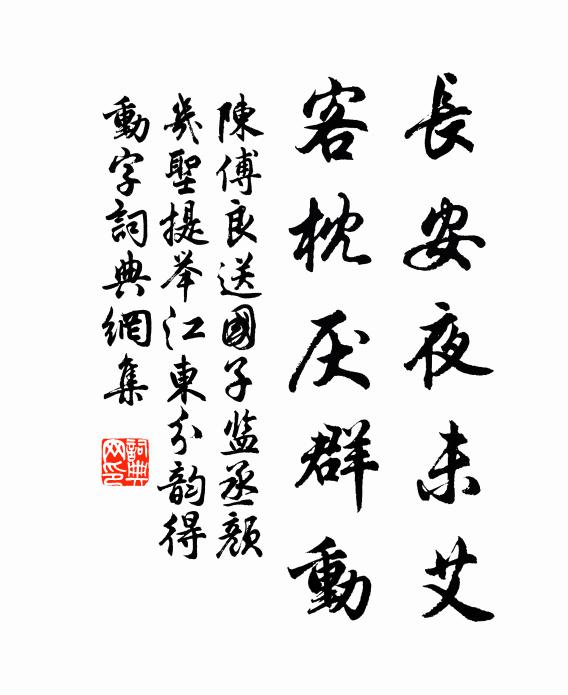 長安夜未艾
客枕厌群動
陳傅良送國子监丞顔
幾聖提举江東分韵得
動字詞典網集
詞典网印